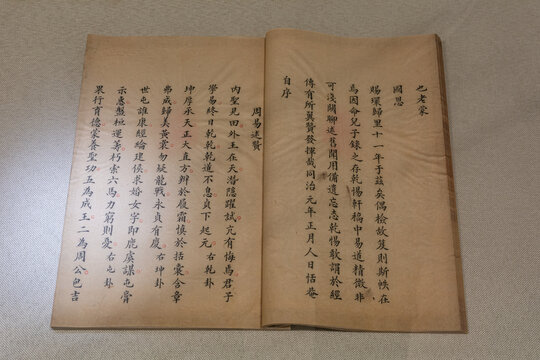 也老蒙
國恩
賜環歸里十一年于茲矣偶檢故笈則斯帙在
焉因命兒子錄之存乾惕軒稿中易道精微非
可淺闚聊述舊聞用備遺忘志乾惕敢謂於經
傳有所翼贊發揮哉同治元年正月人日恬菴
自序
周易述贊
內聖見田外王在天潛隱躍試亢有悔焉君子
學易終日乾乾乾道不息貞下起元右乾卦
坤厚承天正大直方辨於履霜慎於括囊含章
弗成歸美黃裳勿疑龍戰永貞有慶右坤卦
世屯誰康經綸建侯求婚女字即鹿虞謀屯膏
示愚盤桓運籌朽索六馬力窮則憂右屯卦
果行育德蒙養聖功五為成王二為周公包吉